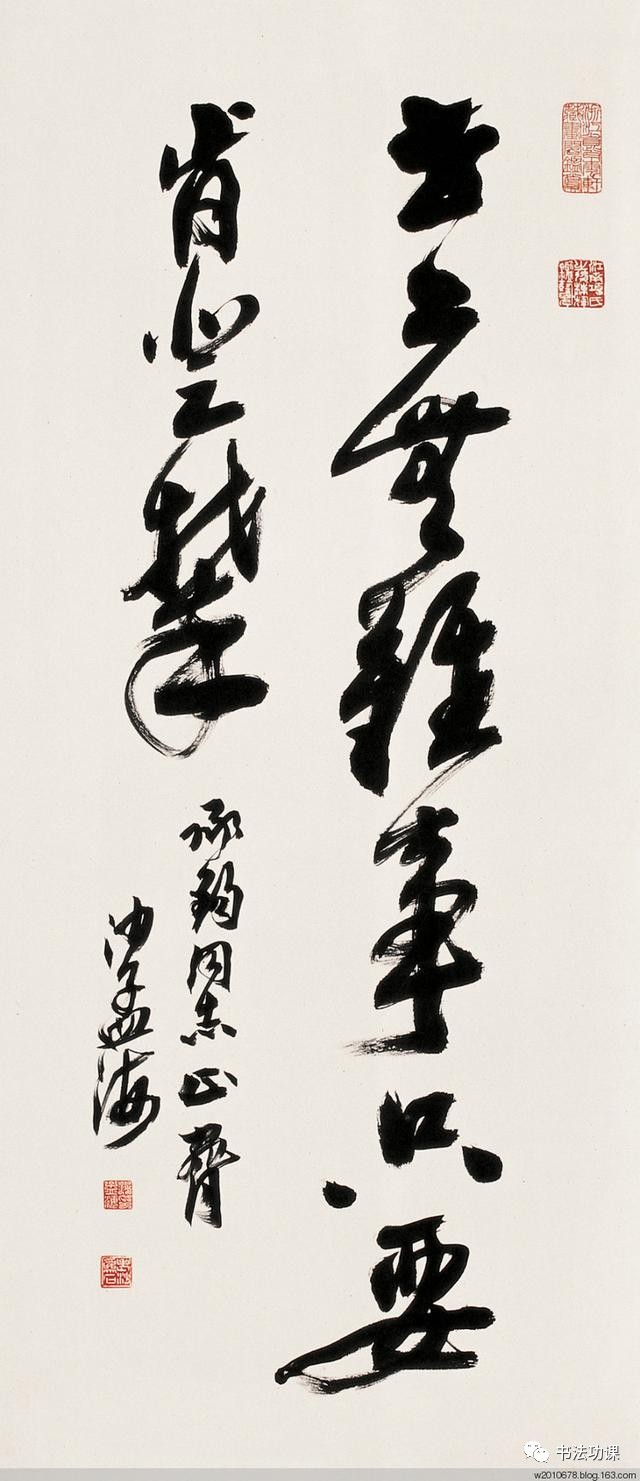 世上無難事只要
肯登攀
承鈞同志正臂
沙孟海
书法功课
w2010678.blog.163.com